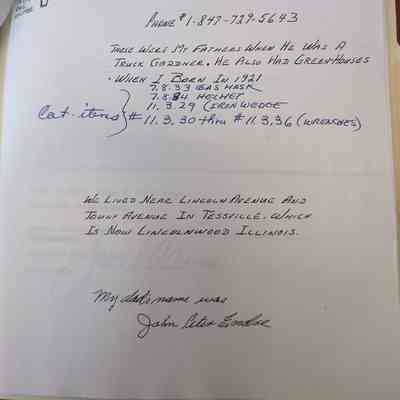 PHONE # 1-847-729-5643
THESE WERE MY FATHERS WHEN HE WAS A
TRUCK GARDNER. HE ALSO HAD GREENHOUSES
• WHEN I BORN IN 1921
7.8.33 GAS MASK
7.8.84 HELMET
11.3.29 (IRON WEDGE
Cat. items } # 11.3.30 thru # 11.3.36 (WRENCHES)
WE LIVED NEAR LINCOLN AVENUE AND
TOUHY AVENUE IN TESSVILLE. WHICH
IS NOW LINCOLNWOOD ILLINOIS.
My dad's name was
John Peter